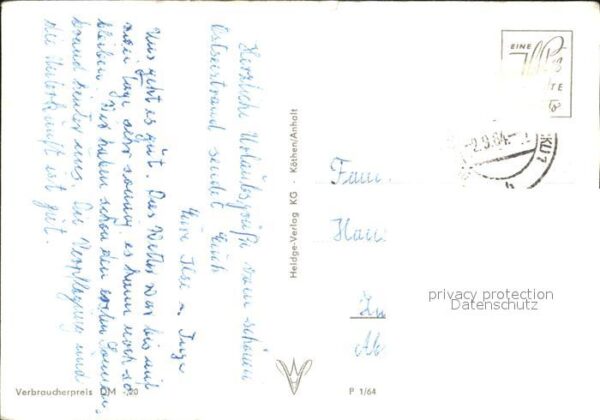 Herzliche Urlaubsgrüße vom schönen
Ostseestrand sendet Euch
Eure Ilse u. Inge
Uns geht es gut. Das Wetter war bis auf
zwei Tage sehr sonnig, es kann noch so
bleiben. Wir haben schon den ersten Sonnen-
brand hinter uns. Die Verpflegung und
die Unterkunft ist gut.
Heldge-Verlag KG · Köthen/Anhalt
EINE
-2.9.64.-
Fam.
Hau
In
privacy protection
Datenschutz
Verbraucherpreis DM -,20
P 1/64